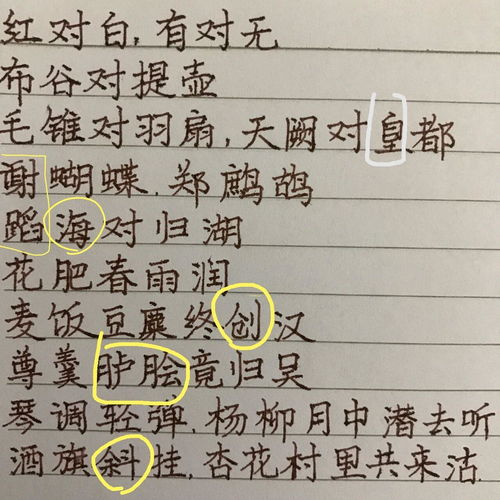 红对白,有对无
布谷对提壶
毛锥对羽扇,天阙对皇都
谢蝴蝶.郑鹧鸪
蹈海对归湖
花肥春雨润
麦饭豆糜终创汉
尊羹胪脍竟归吴
琴调轻弹.杨柳月中潜去听
酒旗斜挂.杏花村里共来沽